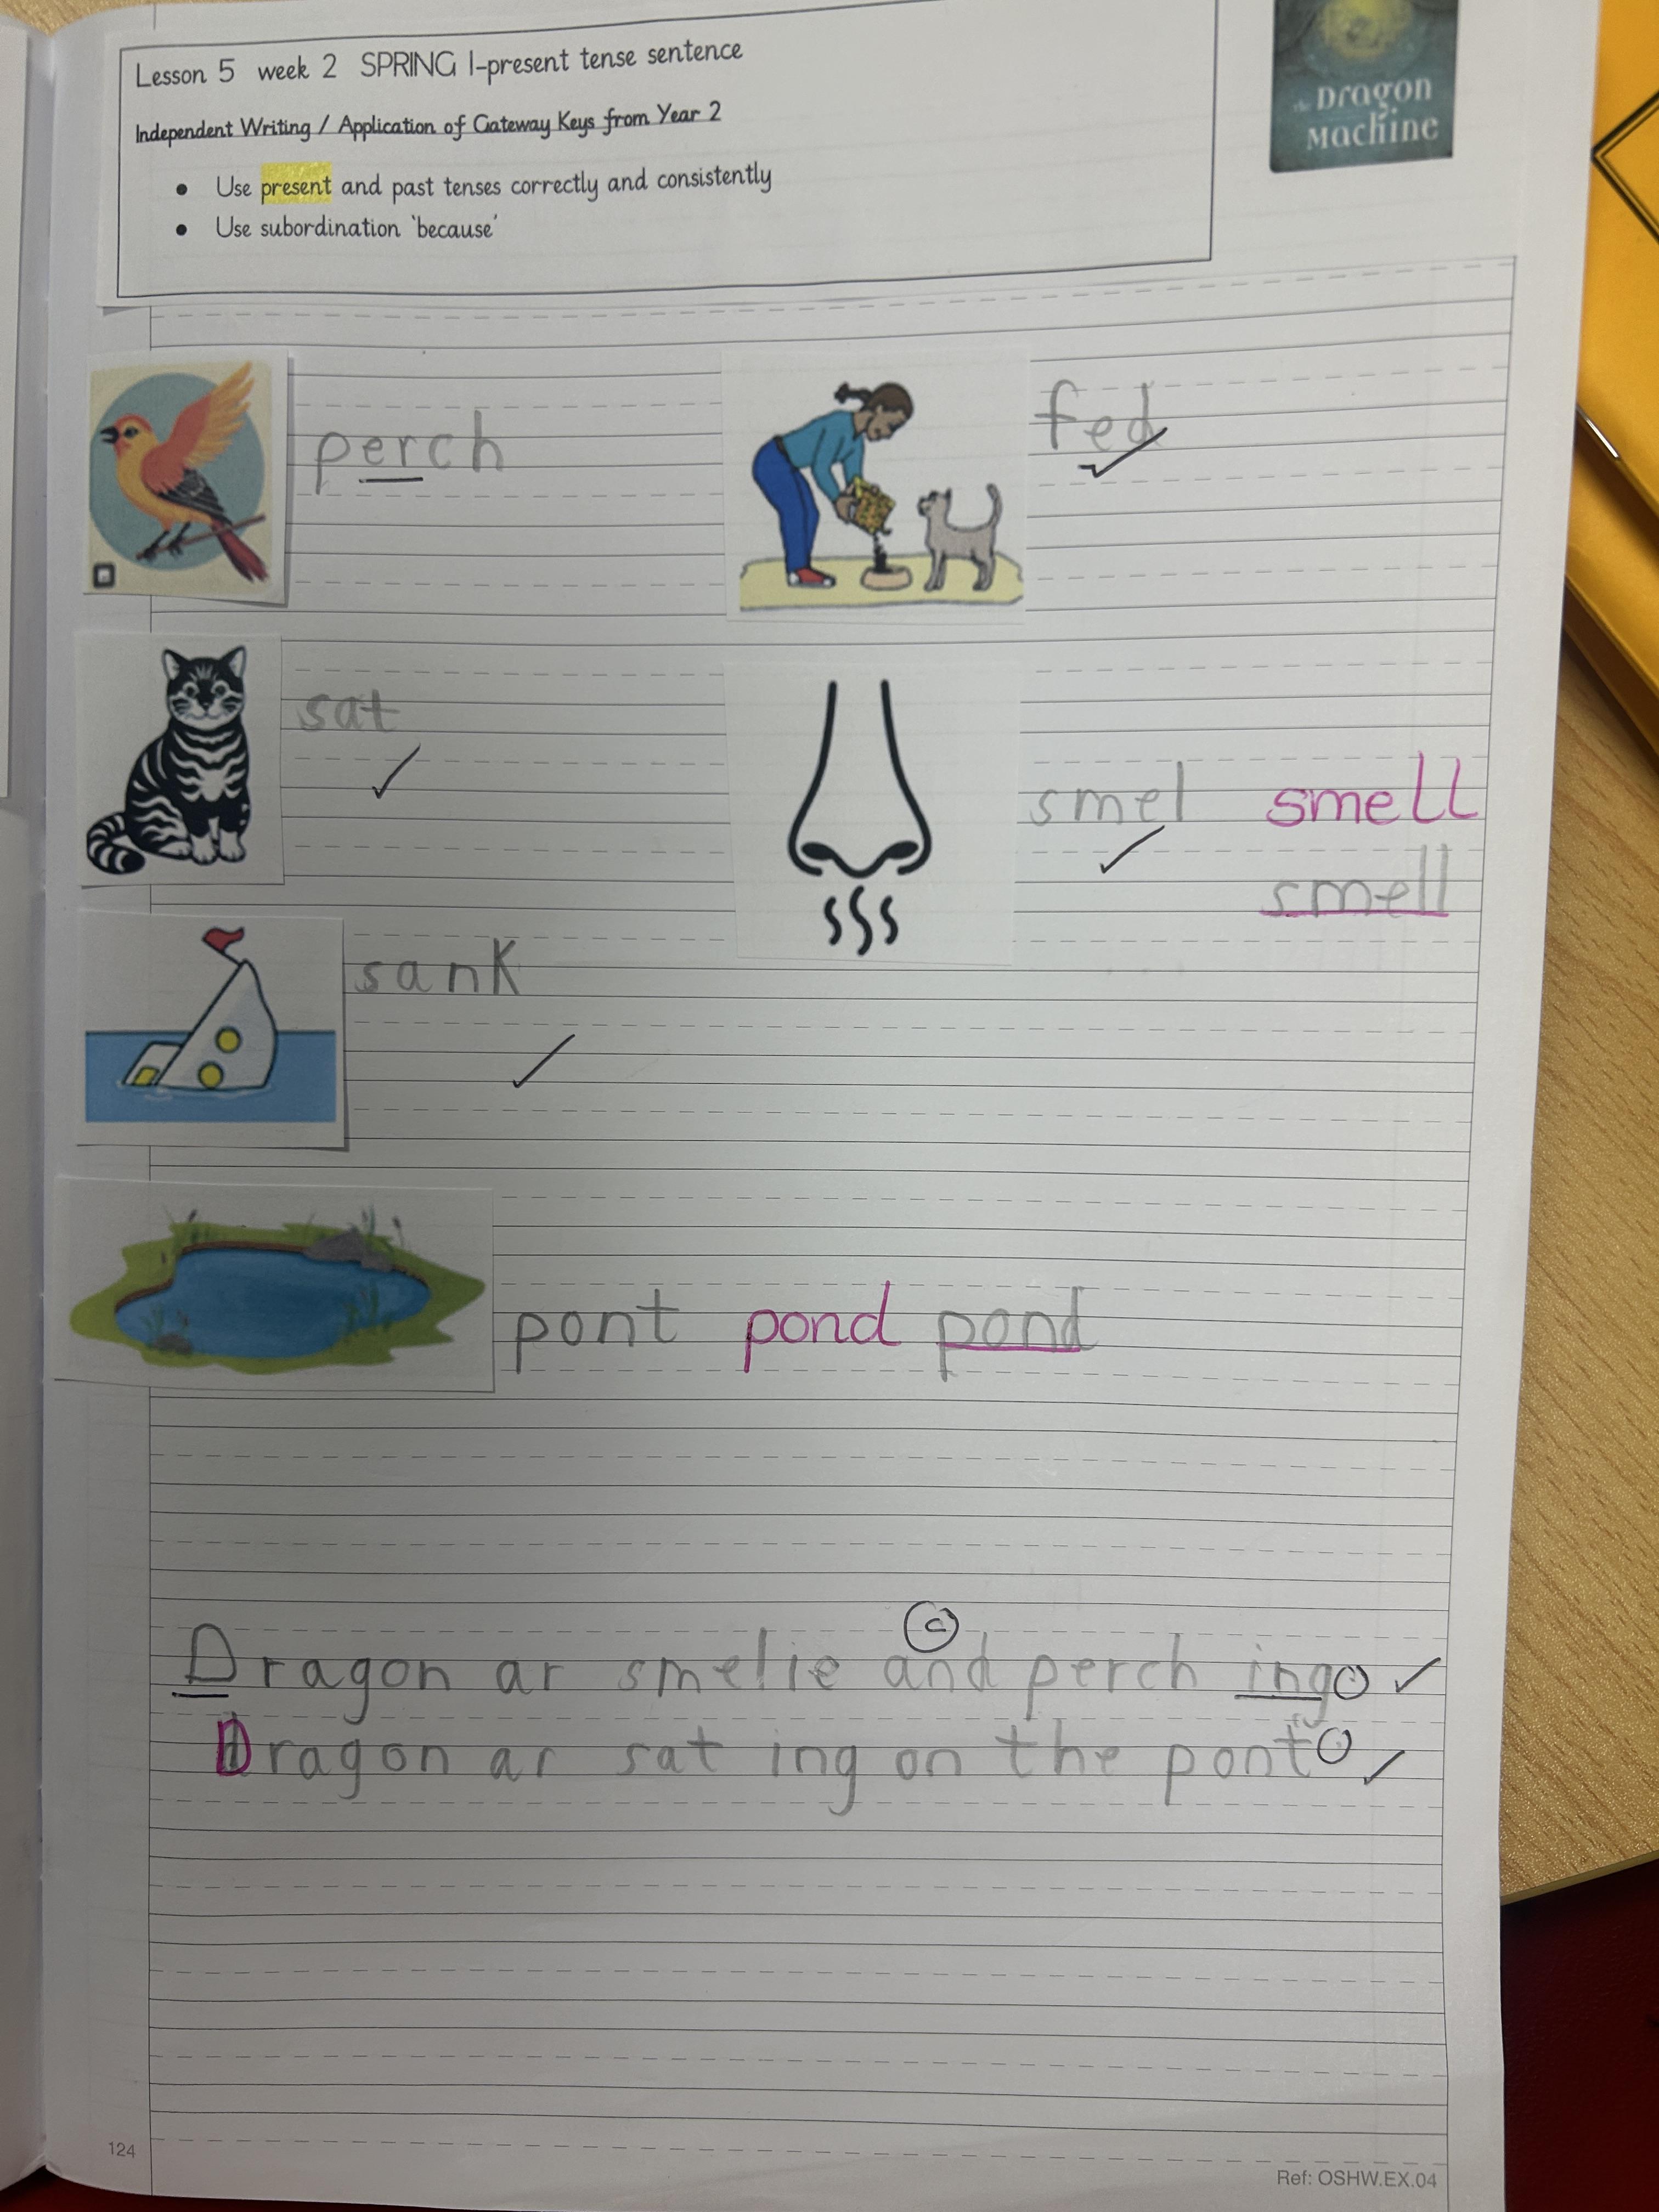 Lesson 5 week 2 SPRING 1-present tense sentence
Independent Writing / Application of Gateway Keys from Year 2
• Use present and past tenses correctly and consistently
• Use subordination 'because'
the Dragon
Machine
perch
fed
sat
smel smell
smell
sank
pont pond pond
c
Dragon ar smelie and perch ing.
Dragon ar sat ing on the pont.
124
Ref: OSHW.EX.04